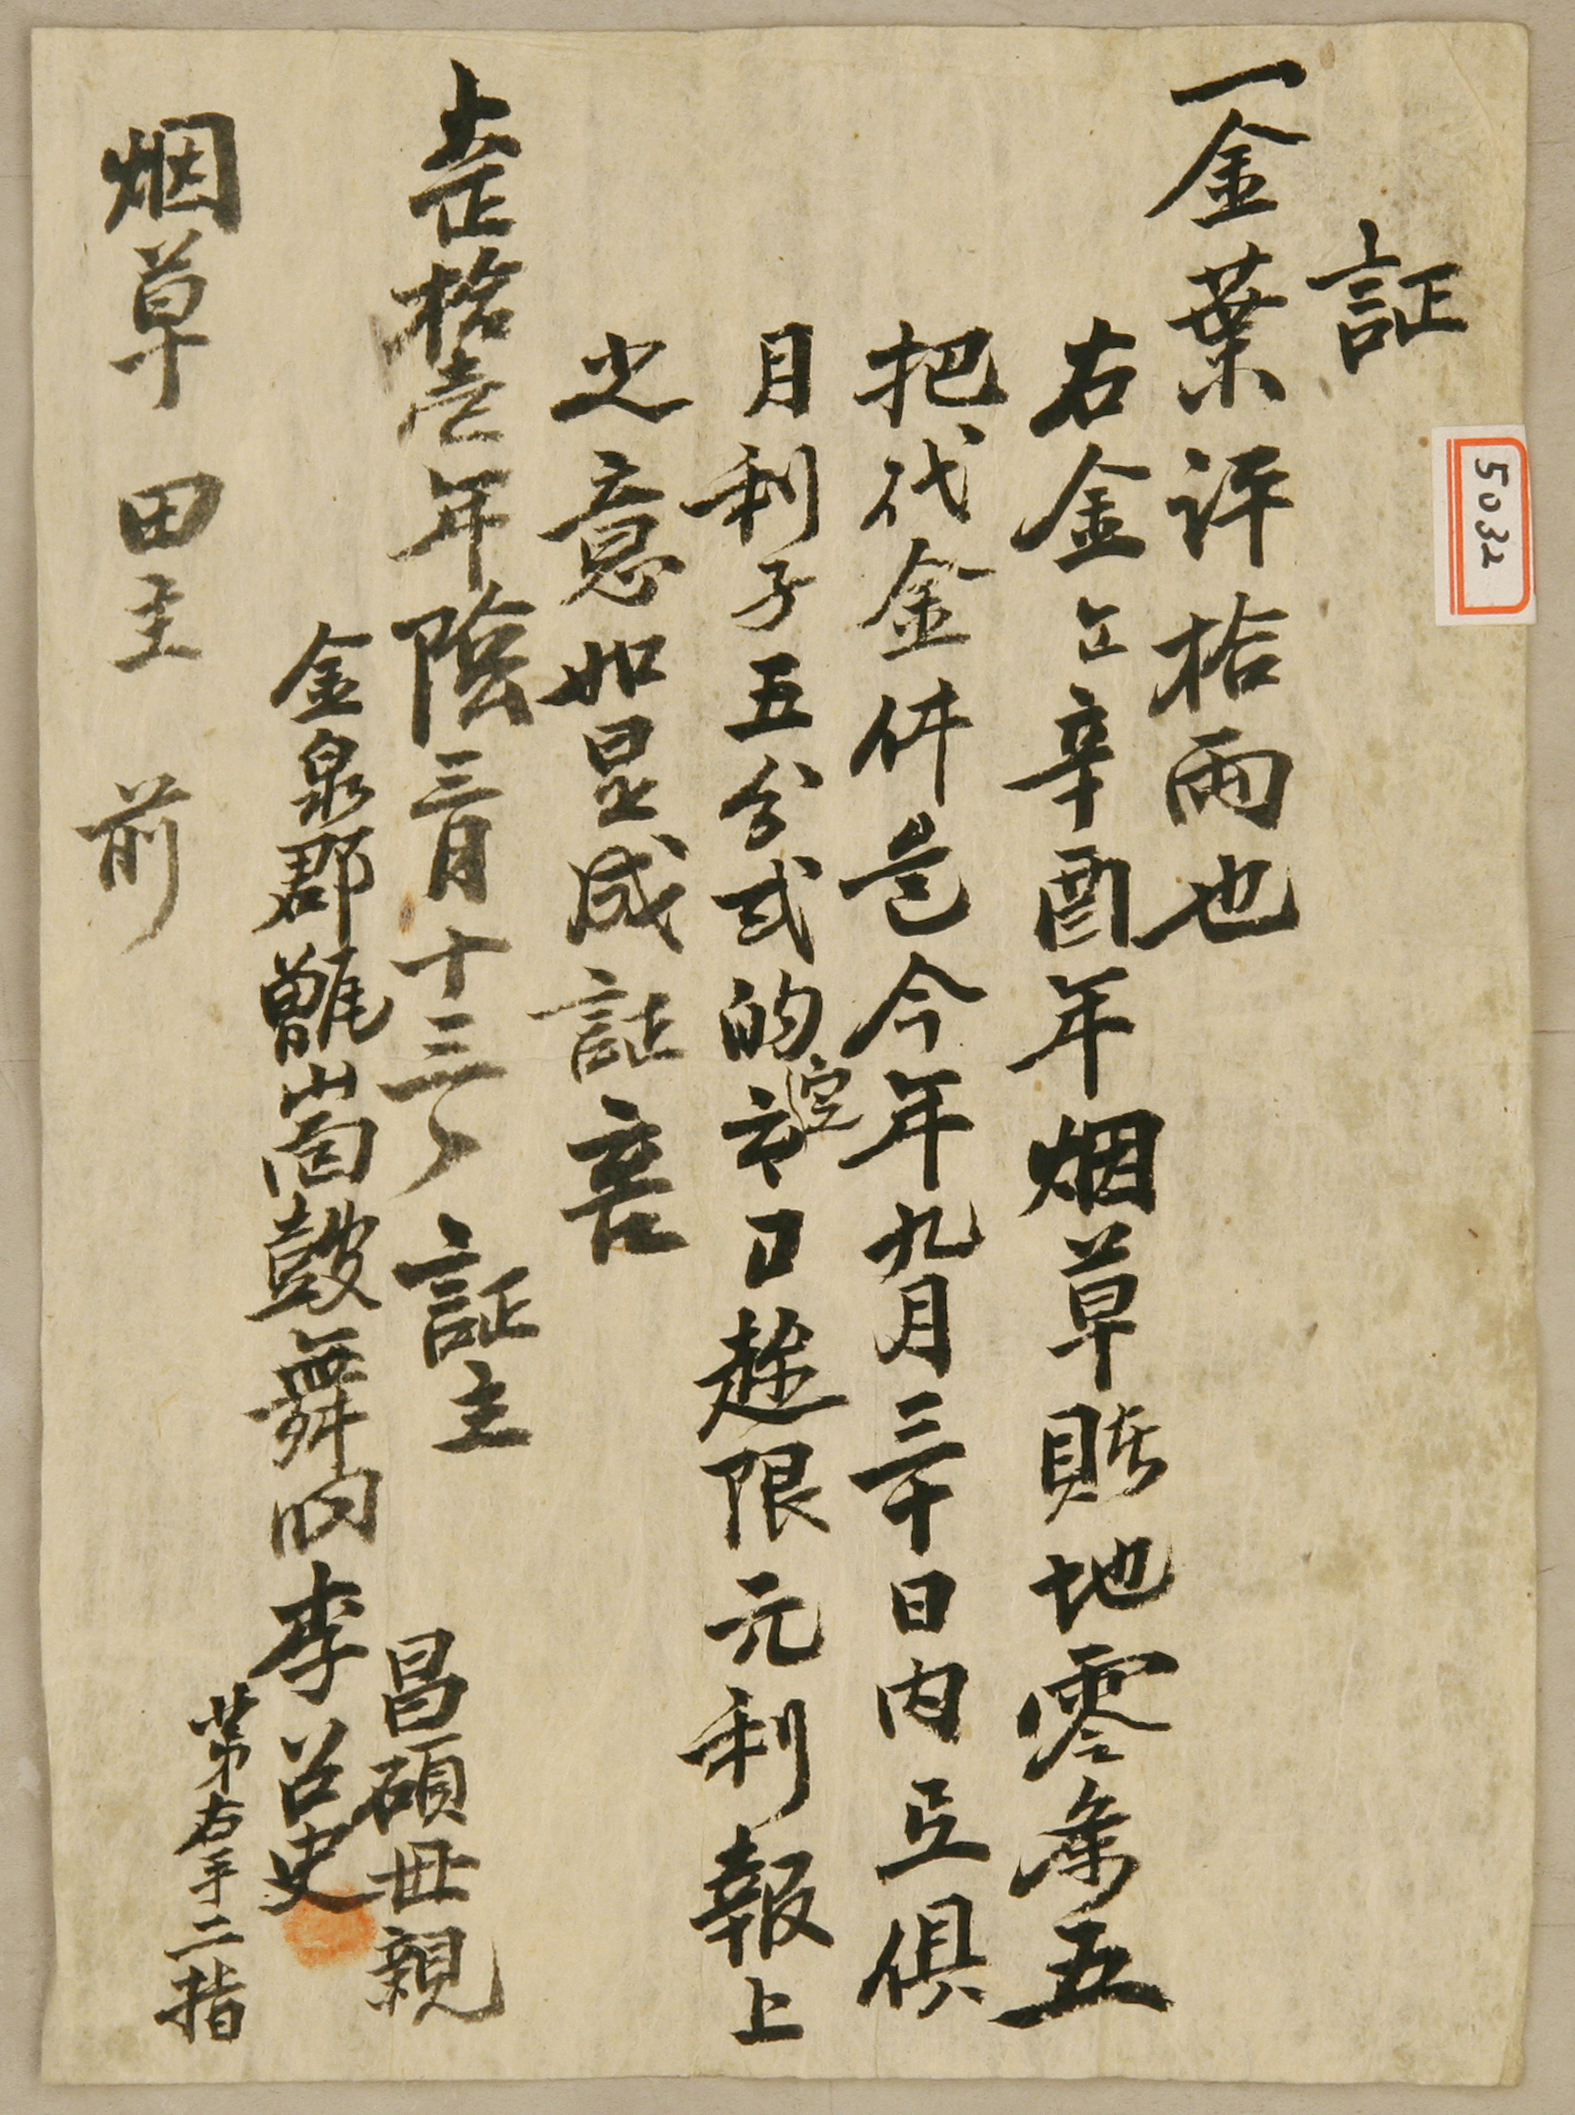 証
5032
一金葉評拾兩也
右金辛酉年烟草地零条五
把代金件是今年九月三十日內俱
月利子五分式的定日趁限元利報上
之意如是成証書
大正拾壹年陰三月十三日 証主
昌碩母親
金泉郡甑山面鼓舞洞李召史
第右手二指
烟草田主前